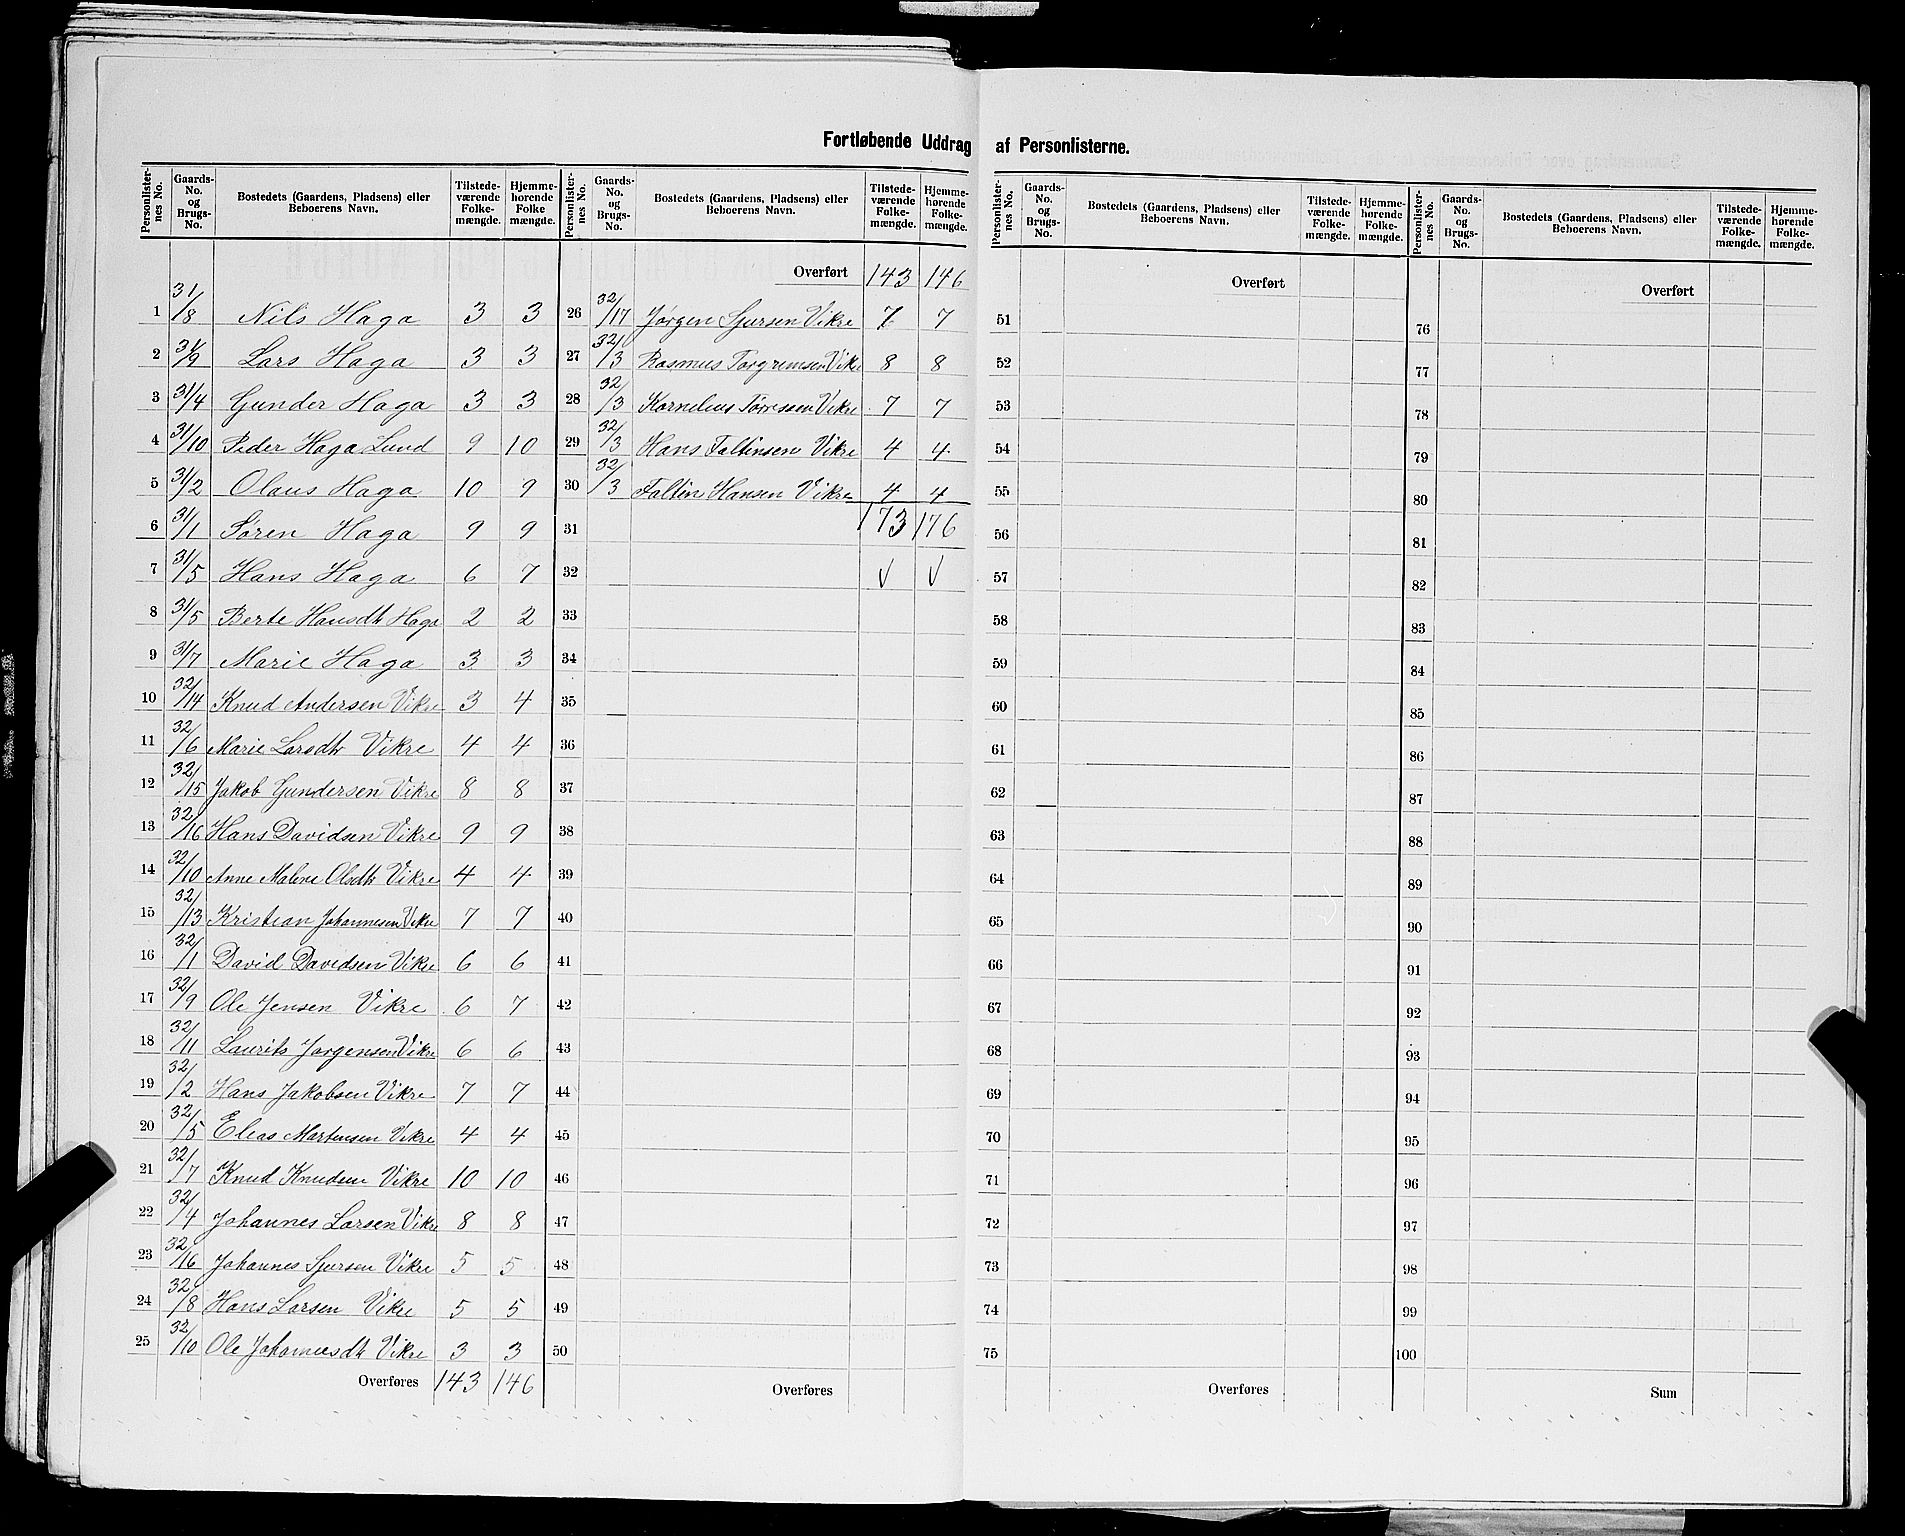 Fortløbende Uddrag af Personlisterne.
Personlisternes No. Gaards-No. og Brugs-No. Bostedets (Gaardens, Pladsens) eller Beboerens Navn. Tilstedeværende Folkemængde. Hjemmehørende Folkemængde.
1 31/8 Nils Haga 3 3
2 31/9 Lars Haga 3 3
3 31/4 Gunder Haga 3 3
4 31/10 Peder Haga Lund 9 10
5 31/2 Olaus Haga 10 9
6 31/1 Søren Haga 9 9
7 31/5 Hans Haga 6 7
8 31/5 Berte Hansdt Haga 2 2
9 31/7 Marie Haga 3 3
10 32/14 Knud Andersen Vikre 3 4
11 32/6 Marie Larsdtr Vikre 4 4
12 32/15 Jakob Gundersen Vikre 8 8
13 32/16 Hans Davidsen Vikre 9 9
14 32/10 Anne Malene Olsdtr Vikre 4 4
15 32/13 Kristian Johannesen Vikre 7 7
16 32/1 David Davidsen Vikre 6 6
17 32/9 Ole Jensen Vikre 6 7
18 32/11 Laurits Jørgensen Vikre 6 6
19 32/2 Hans Jakobsen Vikre 7 7
20 32/5 Elias Martensen Vikre 4 4
21 32/7 Knud Knudsen Vikre 10 10
22 32/4 Johannes Larsen Vikre 8 8
23 32/16 Johannes Sjursen Vikre 5 5
24 32/8 Hans Larsen Vikre 5 5
25 32/10 Ole Johannesdt Vikre 3 3
Overføres 143 146
Personlisternes No. Gaards-No. og Brugs-No. Bostedets (Gaardens, Pladsens) eller Beboerens Navn. Tilstedeværende Folkemængde. Hjemmehørende Folkemængde.
Overført 143 146
26 32/17 Jørgen Sjursen Vikre 7 7
27 32/3 Rasmus Torgrimsen Vikre 8 8
28 32/3 Kornelius Tørressen Vikre 7 7
29 32/3 Hans Faltinsen Vikre 4 4
30 32/3 Faltin Hansen Vikre 4 4
31 173 176
32 √ √
33
34
35
36
37
38
39
40
41
42
43
44
45
46
47
48
49
50
Overføres
Personlisternes No. Gaards-No. og Brugs-No. Bostedets (Gaardens, Pladsens) eller Beboerens Navn. Tilstedeværende Folkemængde. Hjemmehørende Folkemængde.
Overført
51
52
53
54
55
56
57
58
59
60
61
62
63
64
65
66
67
68
69
70
71
72
73
74
75
Overføres
Personlisternes No. Gaards-No. og Brugs-No. Bostedets (Gaardens, Pladsens) eller Beboerens Navn. Tilstedeværende Folkemængde. Hjemmehørende Folkemængde.
Overført
76
77
78
79
80
81
82
83
84
85
86
87
88
89
90
91
92
93
94
95
96
97
98
99
100
Sum